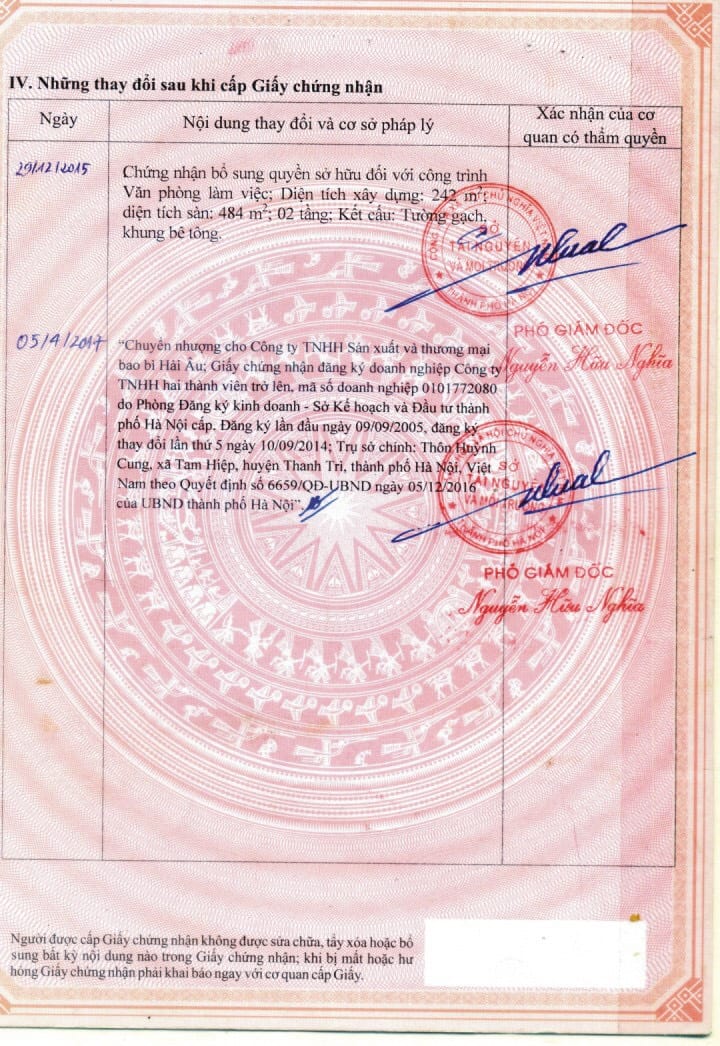 IV. Những thay đổi sau khi cấp Giấy chứng nhận
Ngày
Nội dung thay đổi và cơ sở pháp lý
Xác nhận của cơ
quan có thẩm quyền
29/12/2015
Chứng nhận bổ sung quyền sở hữu đối với công trình
Văn phòng làm việc; Diện tích xây dựng: 242 m²;
diện tích sàn: 484 m²; 02 tầng; Kết cấu: Tường gạch,
khung bê tông.
SỞ
TÀI NGUYÊN
VÀ MÔI TRƯỜNG
THÀNH PHỐ HÀ NỘI
PHÓ GIÁM ĐỐC
Nguyễn Hữu Nghĩa
05/4/2017
"Chuyển nhượng cho Công ty TNHH Sản xuất và thương mại
bao bì Hải Âu; Giấy chứng nhận đăng ký doanh nghiệp Công ty
TNHH hai thành viên trở lên, mã số doanh nghiệp 0101772080
do Phòng Đăng ký kinh doanh - Sở Kế hoạch và Đầu tư thành
phố Hà Nội cấp. Đăng ký lần đầu ngày 09/09/2005, đăng ký
thay đổi lần thứ 5 ngày 10/09/2014; Trụ sở chính: Thôn Huỳnh
Cung, xã Tam Hiệp, huyện Thanh Trì, thành phố Hà Nội, Việt
Nam theo Quyết định số 6659/QĐ-UBND ngày 05/12/2016
của UBND thành phố Hà Nội"
SỞ
TÀI NGUYÊN
VÀ MÔI TRƯỜNG
THÀNH PHỐ HÀ NỘI
PHÓ GIÁM ĐỐC
Nguyễn Hữu Nghĩa
Người được cấp Giấy chứng nhận không được sửa chữa, tẩy xóa hoặc bổ
sung bất kỳ nội dung nào trong Giấy chứng nhận; khi bị mất hoặc hư
hỏng Giấy chứng nhận phải khai báo ngay với cơ quan cấp Giấy.